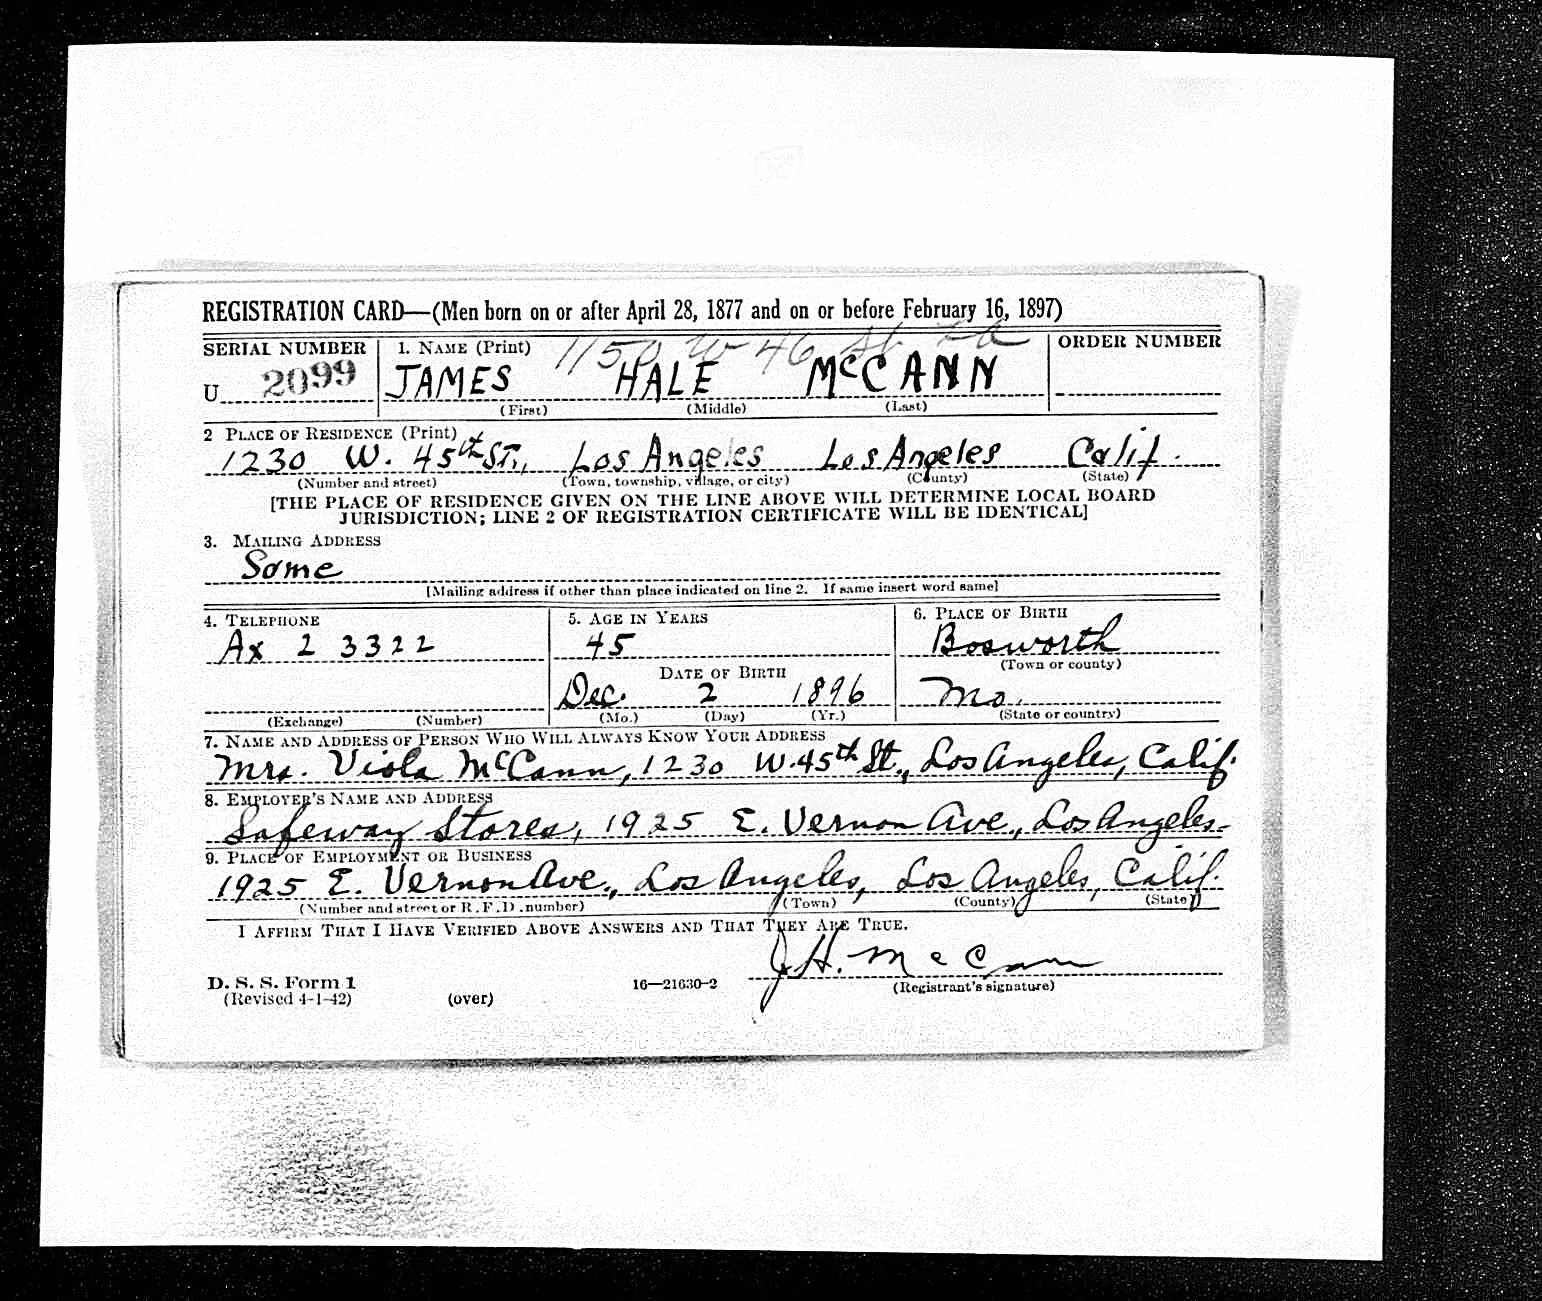 REGISTRATION CARD—(Men born on or after April 28, 1877 and on or before February 16, 1897)
1150 W 46 St LA
SERIAL NUMBER 1. NAME (Print) ORDER NUMBER
U 2099 JAMES HALE McCANN
(First) (Middle) (Last)
2 PLACE OF RESIDENCE (Print)
1230 W. 45th ST., Los Angeles Los Angeles Calif.
(Number and street) (Town, township, village, or city) (County) (State)
[THE PLACE OF RESIDENCE GIVEN ON THE LINE ABOVE WILL DETERMINE LOCAL BOARD
JURISDICTION; LINE 2 OF REGISTRATION CERTIFICATE WILL BE IDENTICAL]
3. MAILING ADDRESS
Same
[Mailing address if other than place indicated on line 2. If same insert word same]
4. TELEPHONE 5. AGE IN YEARS 6. PLACE OF BIRTH
Ax 2 3322 45 Bosworth
(Town or county)
DATE OF BIRTH
Dec. 2 1896 Mo.
(Exchange) (Number) (Mo.) (Day) (Yr.) (State or country)
7. NAME AND ADDRESS OF PERSON WHO WILL ALWAYS KNOW YOUR ADDRESS
Mrs. Viola McCann, 1230 W. 45th St., Los Angeles, Calif.
8. EMPLOYER'S NAME AND ADDRESS
Safeway Stores, 1925 E. Vernon Ave., Los Angeles
9. PLACE OF EMPLOYMENT OR BUSINESS
1925 E. Vernon Ave., Los Angeles, Los Angeles, Calif.
(Number and street or R. F. D. number) (Town) (County) (State)
I AFFIRM THAT I HAVE VERIFIED ABOVE ANSWERS AND THAT THEY ARE TRUE.
J. H. McCann
D. S. S. Form 1 16—21630-2 (Registrant's signature)
(Revised 4-1-42) (over)